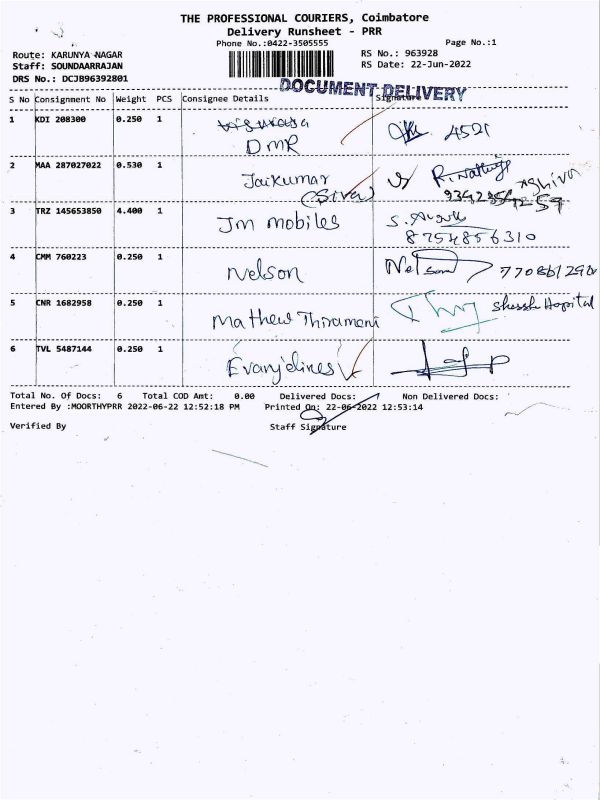 THE PROFESSIONAL COURIERS, Coimbatore
Delivery Runsheet - PRR
Phone No.:0422-3505555
Page No.:1
Route: KARUNYA NAGAR
RS No.: 963928
Staff: SOUNDAARRAJAN
RS Date: 22-Jun-2022
DRS No.: DCJB96392801
DOCUMENT DELIVERY
S No Consignment No Weight PCS Consignee Details Signature
1 KDI 208300 0.250 1
DMR 4521
2 MAA 287027022 0.530 1
Jaikumar
(Siva)
3 TRZ 145653850 4.400 1
Jm mobiles
8754856310
4 CMM 760223 0.250 1
Nelson Nelson
5 CNR 1682958 0.250 1
Mathew Thiramani
6 TVL 5487144 0.250 1
Evanjelines
Total No. Of Docs: 6 Total COD Amt: 0.00 Delivered Docs: Non Delivered Docs:
Entered By :MOORTHYPRR 2022-06-22 12:52:18 PM Printed On: 22-06-2022 12:53:14
Verified By Staff Signature